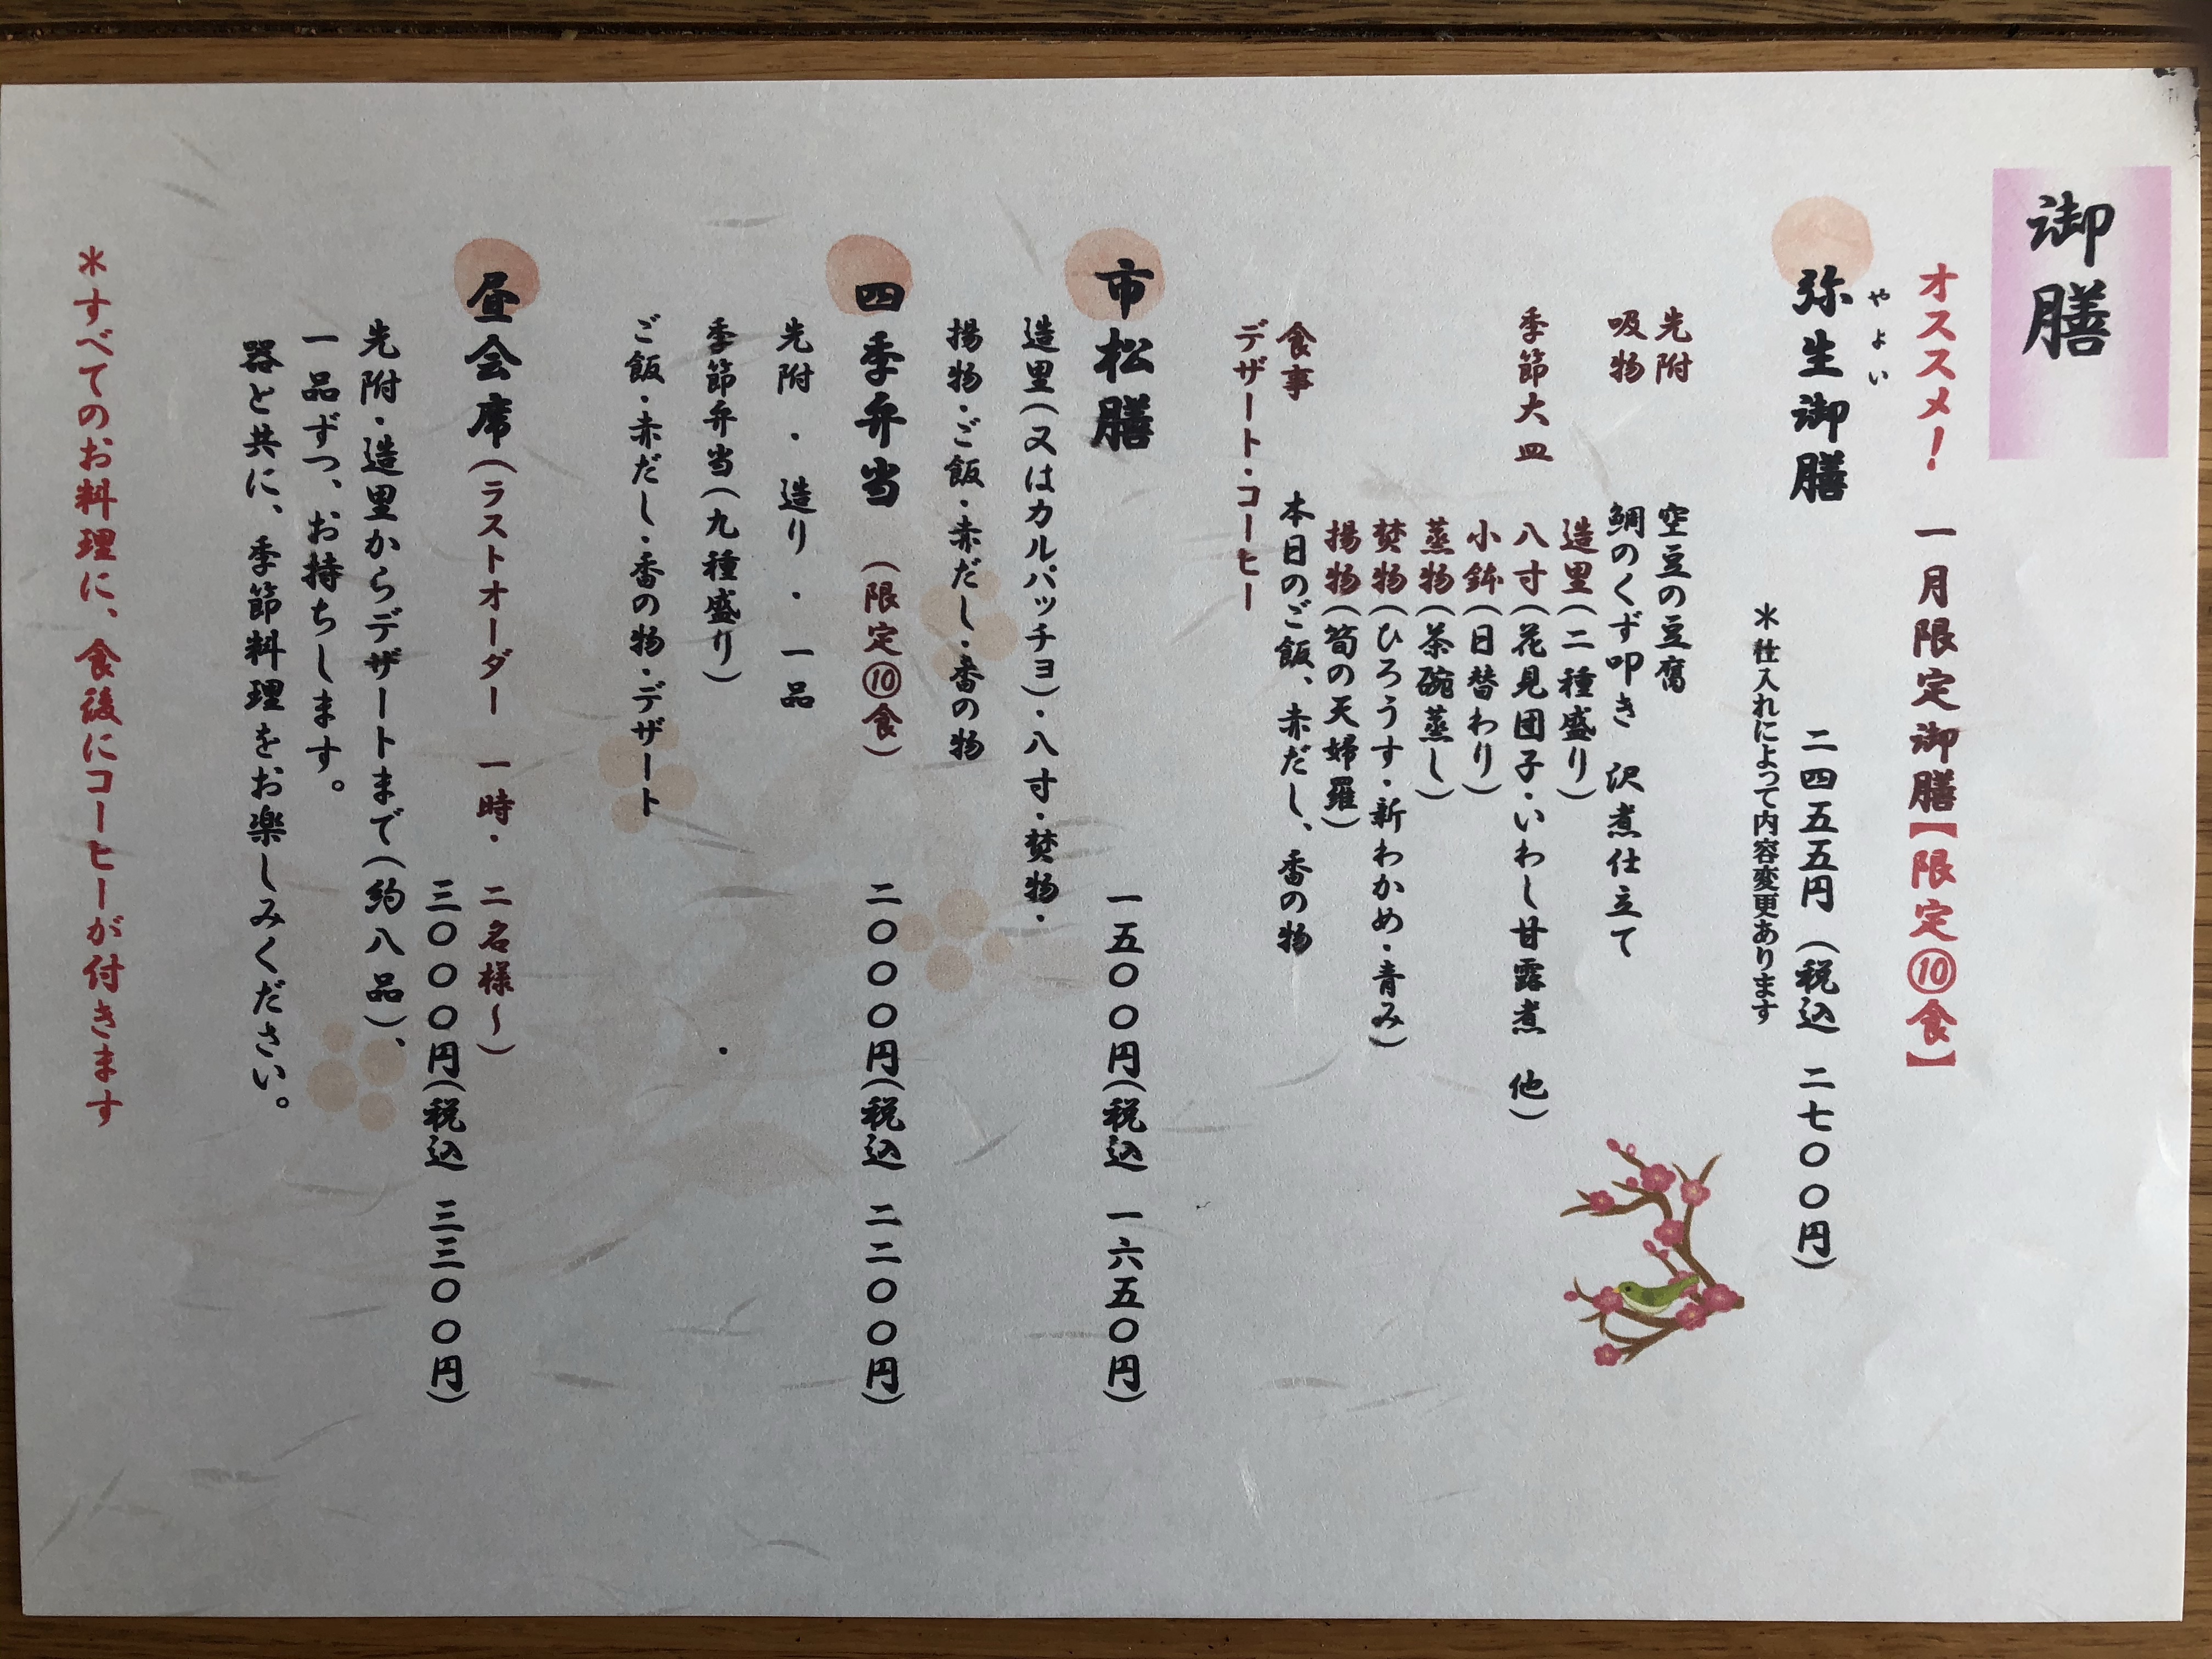 御膳
オススメ！　一月限定御膳【限定⑩食】
やよい
弥生御膳　二四五五円（税込　二七〇〇円）
＊仕入れによって内容変更あります
先附　空豆の豆腐
吸物　鯛のくず叩き　沢煮仕立て
季節大皿
造里（二種盛り）
八寸（花見団子・いわし甘露煮　他）
小鉢（日替わり）
蒸物（茶碗蒸し）
焚物（ひろうす・新わかめ・青み）
揚物（筍の天婦羅）
食事　本日のご飯、赤だし、香の物
デザート・コーヒー
市松膳　一五〇〇円（税込　一六五〇円）
造里（又はカルパッチョ）・八寸・焚物・
揚物・ご飯・赤だし・香の物
四季弁当　（限定⑩食）　二〇〇〇円（税込　二二〇〇円）
先附　・　造り　・　一品
季節弁当（九種盛り）
ご飯・赤だし・香の物・デザート
昼会席（ラストオーダー　一時・　二名様～）
三〇〇〇円（税込　三三〇〇円）
先附・造里からデザートまで（約八品）、
一品ずつ、お持ちします。
器と共に、季節料理をお楽しみください。
＊すべてのお料理に、食後にコーヒーが付きます